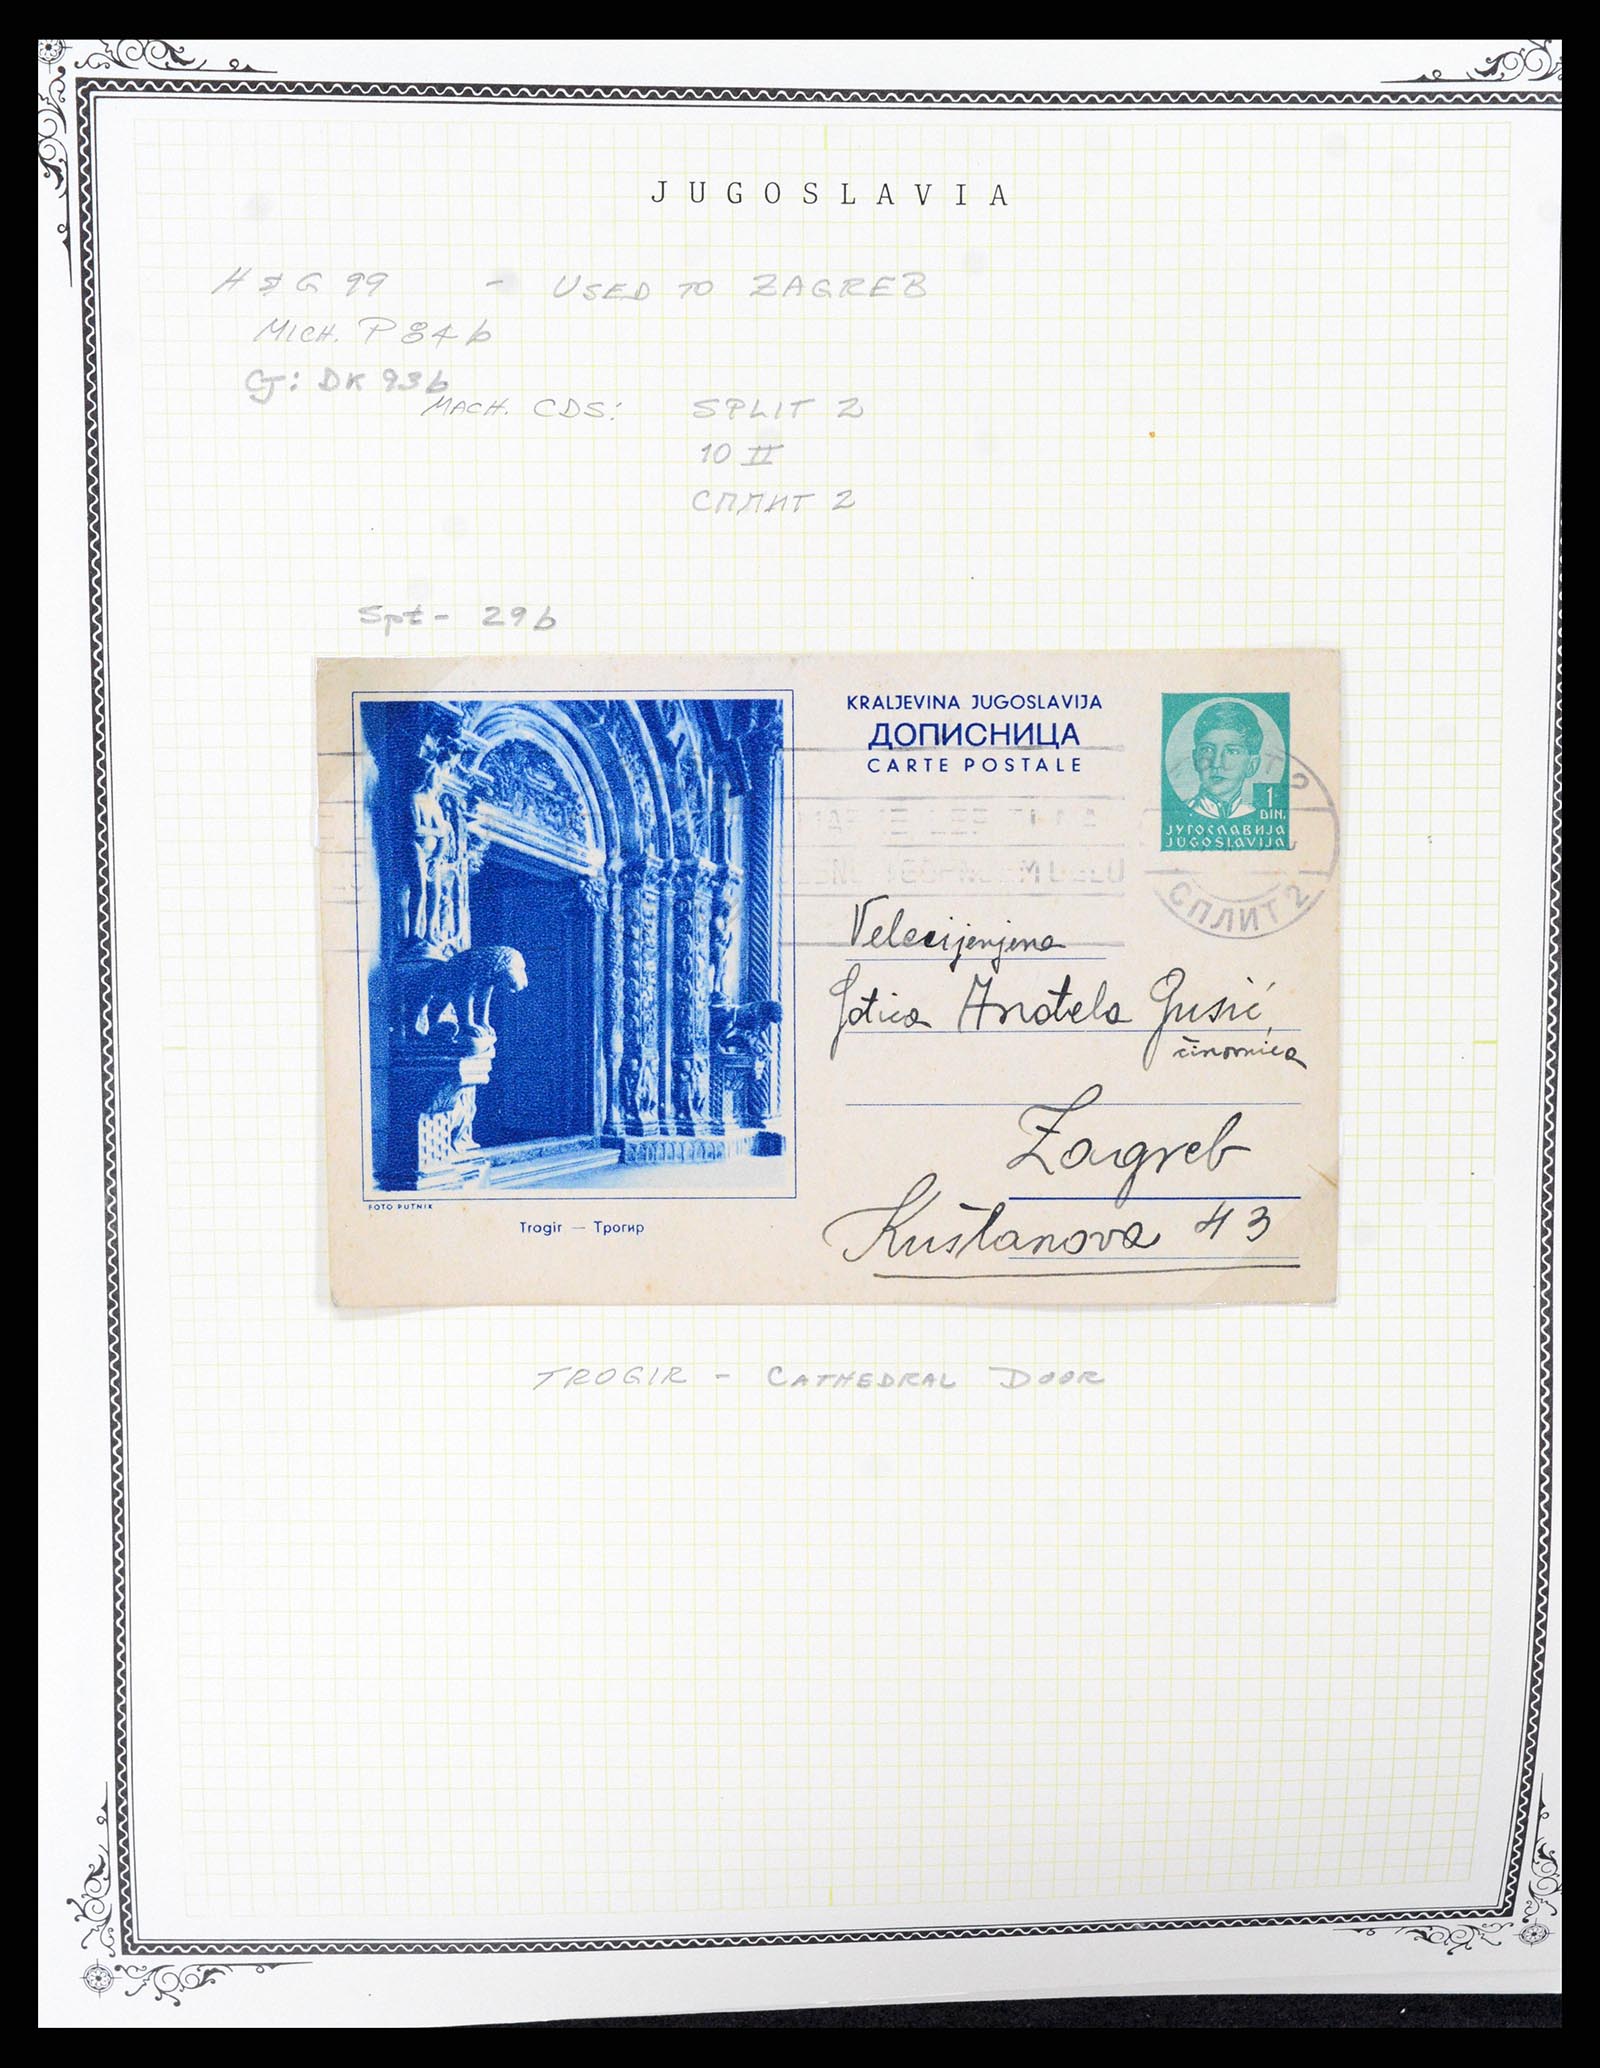 JUGOSLAVIA
H & G 99 - USED TO ZAGREB
MICH. P84b
CJ: DK 93b
MACH. CDS: SPLIT 2
10 II
СПЛИТ 2
Spt - 29b
KRALJEVINA JUGOSLAVIJA
ДОПИСНИЦА
CARTE POSTALE
1
DIN.
ЈУГОСЛАВИЈА
JUGOSLAVIJA
СПЛИТ 2
Velecijenjena
Gđica Anđela Gusić,
Zagreb
Kuślanova 43
FOTO PUTNIK
Trogir — Трогир
TROGIR - CATHEDRAL DOOR